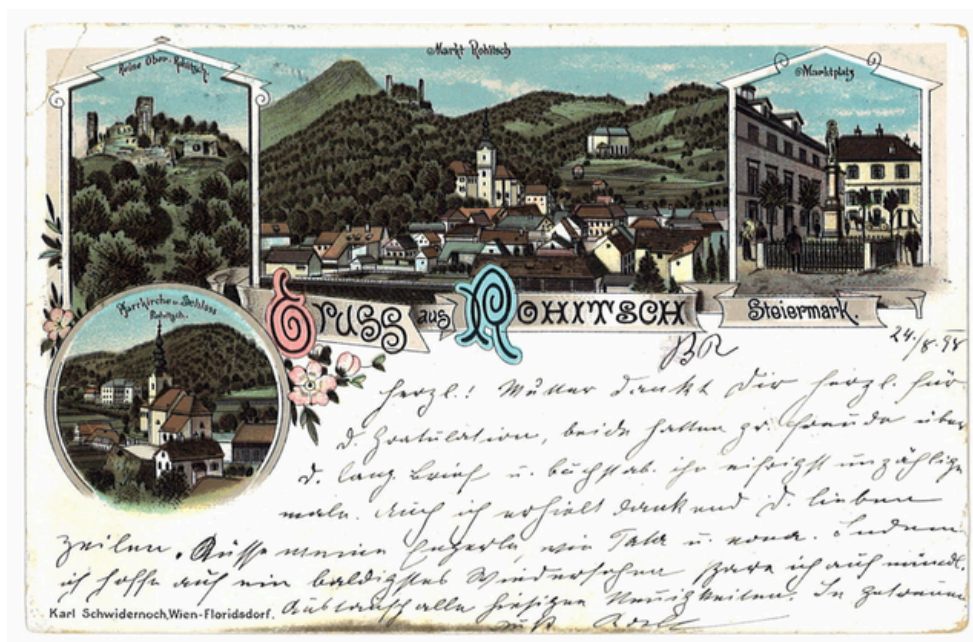 Ruine Ober-Rohitsch.
Markt Rohitsch
Marktplatz
Pfarrkirche u. Schloss
Rohitsch.
Gruss aus Rohitsch
Steiermark.
24./8. 98
herzl.! Mutter dankt Dir herzl. für
d. Gratulation, beide hatten gr. Freude über
d. lang. Brief u. buchstab. ihn eifrigst unzählige
male. Auch ich erhielt dankend D. lieben
Zeilen. Küsse meine wie Tata u. Indem
ich hoffe auf ein baldigstes Wiedersehen spare ich auf mündl.
Austausch alle hiesigen Neuigkeiten. In
Karl Schwidernoch, Wien-Floridsdorf.